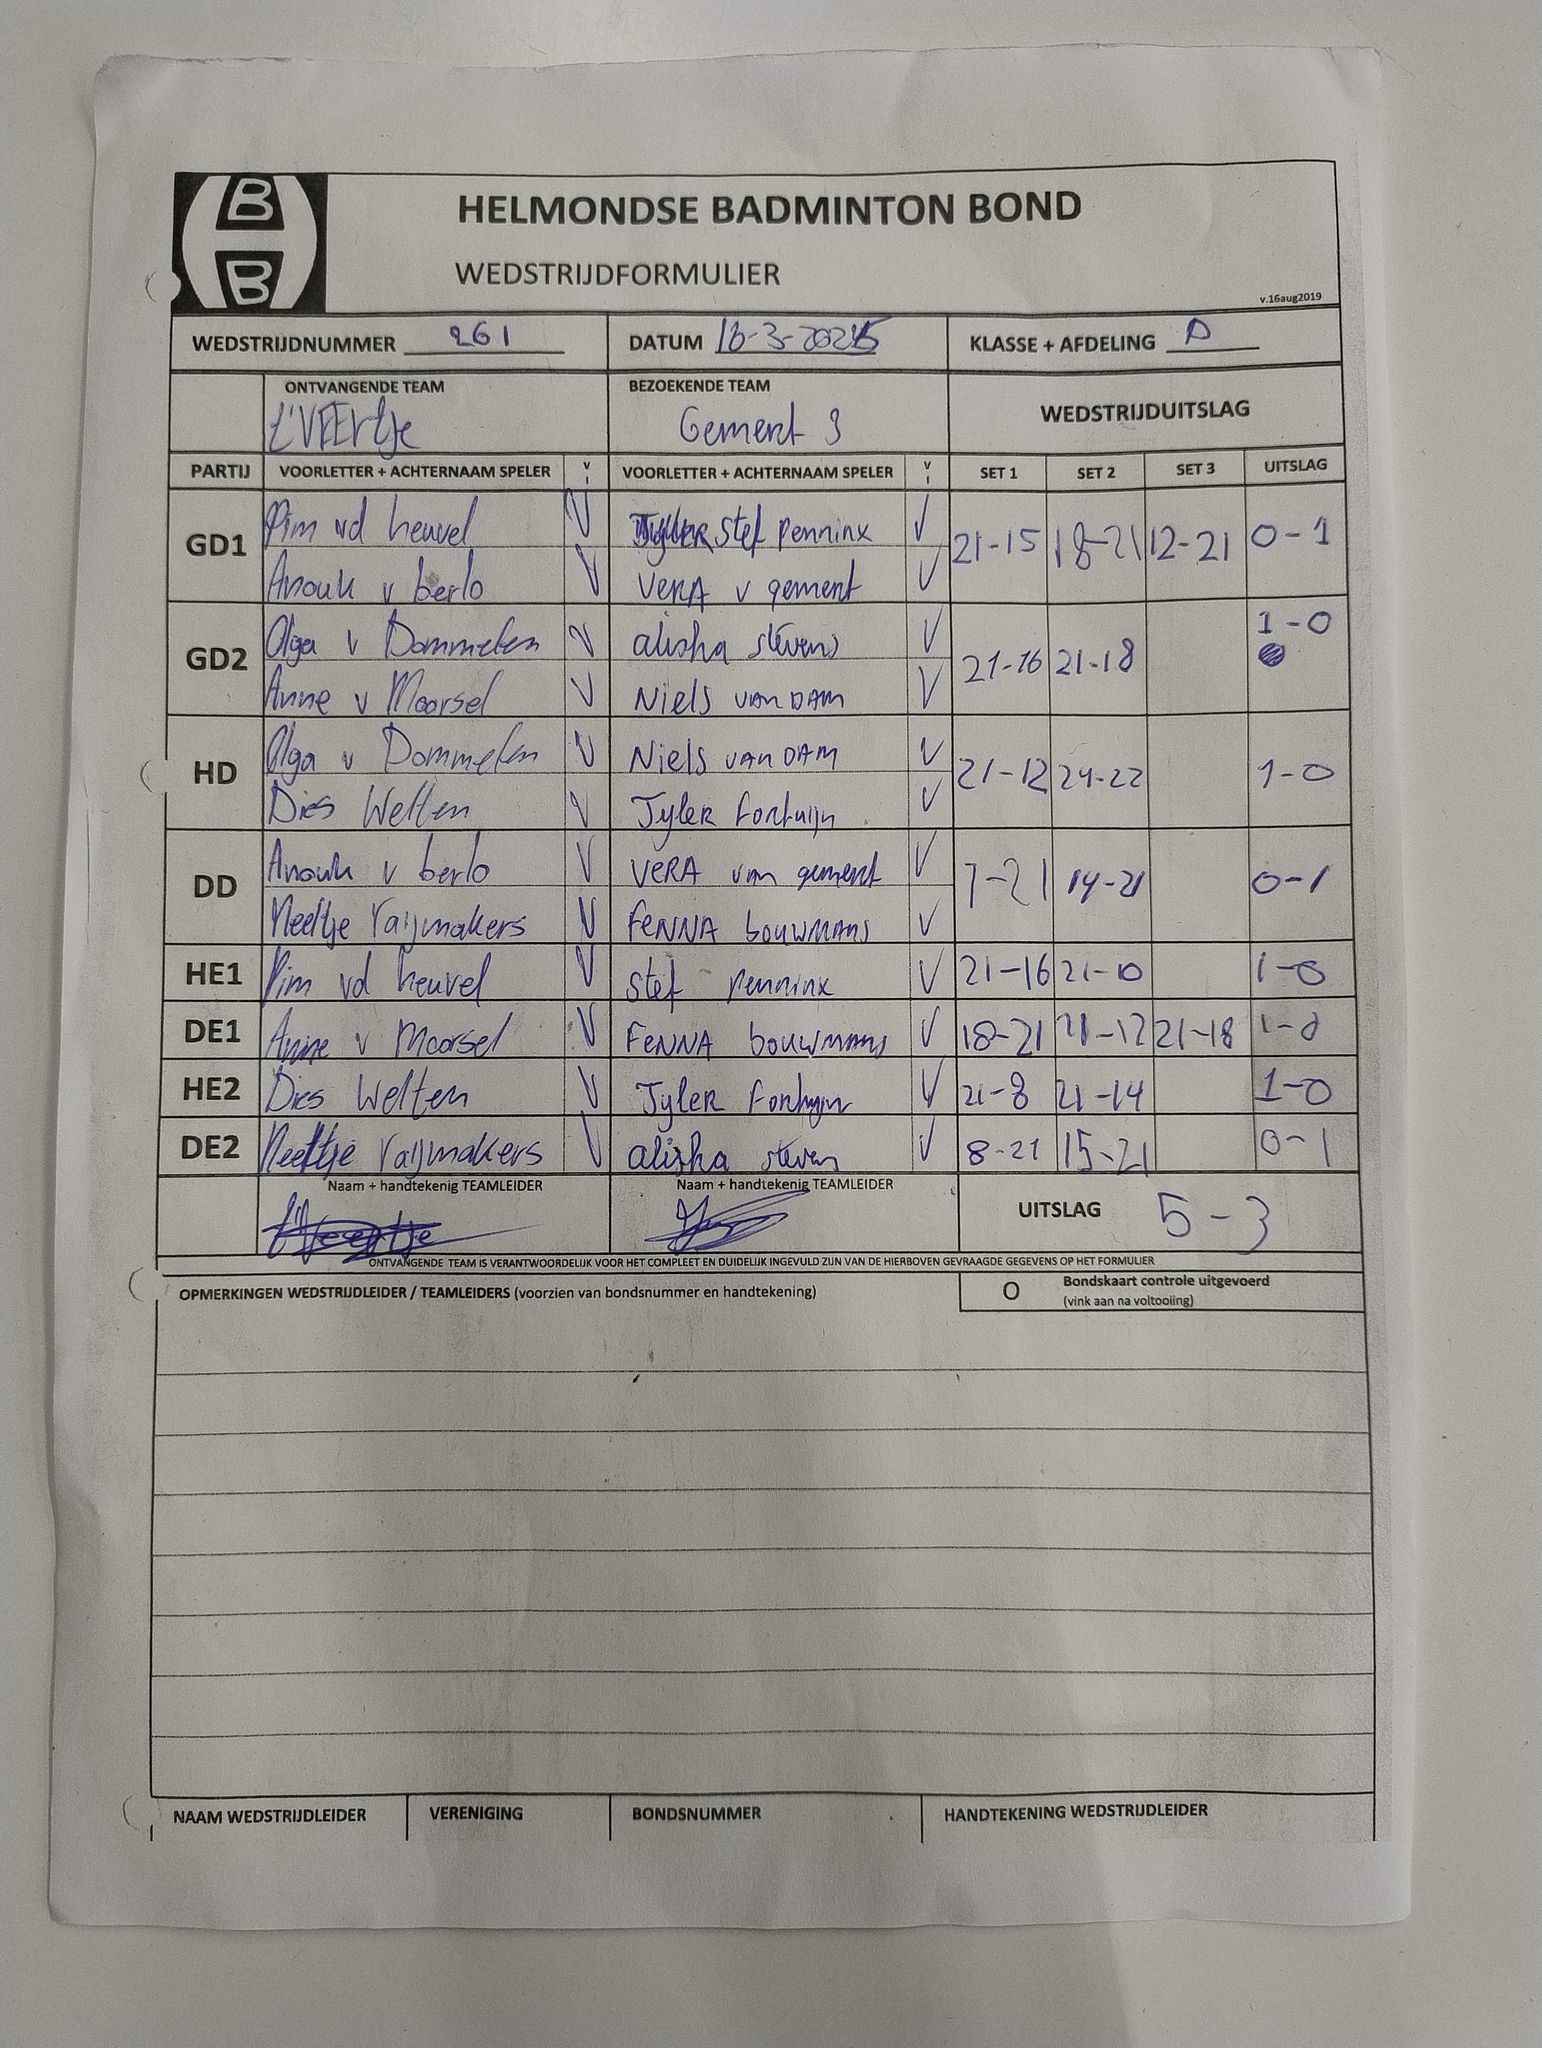 B
B
HELMONDSE BADMINTON BOND
WEDSTRIJDFORMULIER
v.16aug2019
WEDSTRIJDNUMMER 261 DATUM KLASSE + AFDELING D
ONTVANGENDE TEAM BEZOEKENDE TEAM WEDSTRIJDUITSLAG
t'VEErtje Gement 3
PARTIJ VOORLETTER + ACHTERNAAM SPELER V VOORLETTER + ACHTERNAAM SPELER V SET 1 SET 2 SET 3 UITSLAG
GD1 Pim vd heuvel V stef penninx V 21-15 18-21 12-21 0-1
Anouk v berlo V VERA v gement V
GD2 Olga v Dommelen V alisha stevens V 21-16 21-18 1-0
Anne v Moorsel V Niels VAN DAM V
HD Olga v Dommelen V Niels VAN DAM V 21-12 24-22 1-0
Dies Welten V Tyler Fortuijn V
DD Anouk v berlo V VERA van gement V 7-21 14-21 0-1
Neeltje raijmakers V FENNA bouwmans V
HE1 Pim vd heuvel V stef penninx V 21-16 21-10 1-0
DE1 Anne v Moorsel V FENNA bouwmans V 18-21 21-12 21-18 1-0
HE2 Dies Welten V Tyler Fortuijn V 21-8 21-14 1-0
DE2 Neeltje raijmakers V alisha steven V 8-21 15-21 0-1
Naam + handtekenig TEAMLEIDER Naam + handtekenig TEAMLEIDER UITSLAG 5-3
t'Veertje
ONTVANGENDE TEAM IS VERANTWOORDELIJK VOOR HET COMPLEET EN DUIDELIJK INGEVULD ZIJN VAN DE HIERBOVEN GEVRAAGDE GEGEVENS OP HET FORMULIER
OPMERKINGEN WEDSTRIJDLEIDER / TEAMLEIDERS (voorzien van bondsnummer en handtekening) O Bondskaart controle uitgevoerd
(vink aan na voltooiing)
NAAM WEDSTRIJDLEIDER VERENIGING BONDSNUMMER HANDTEKENING WEDSTRIJDLEIDER